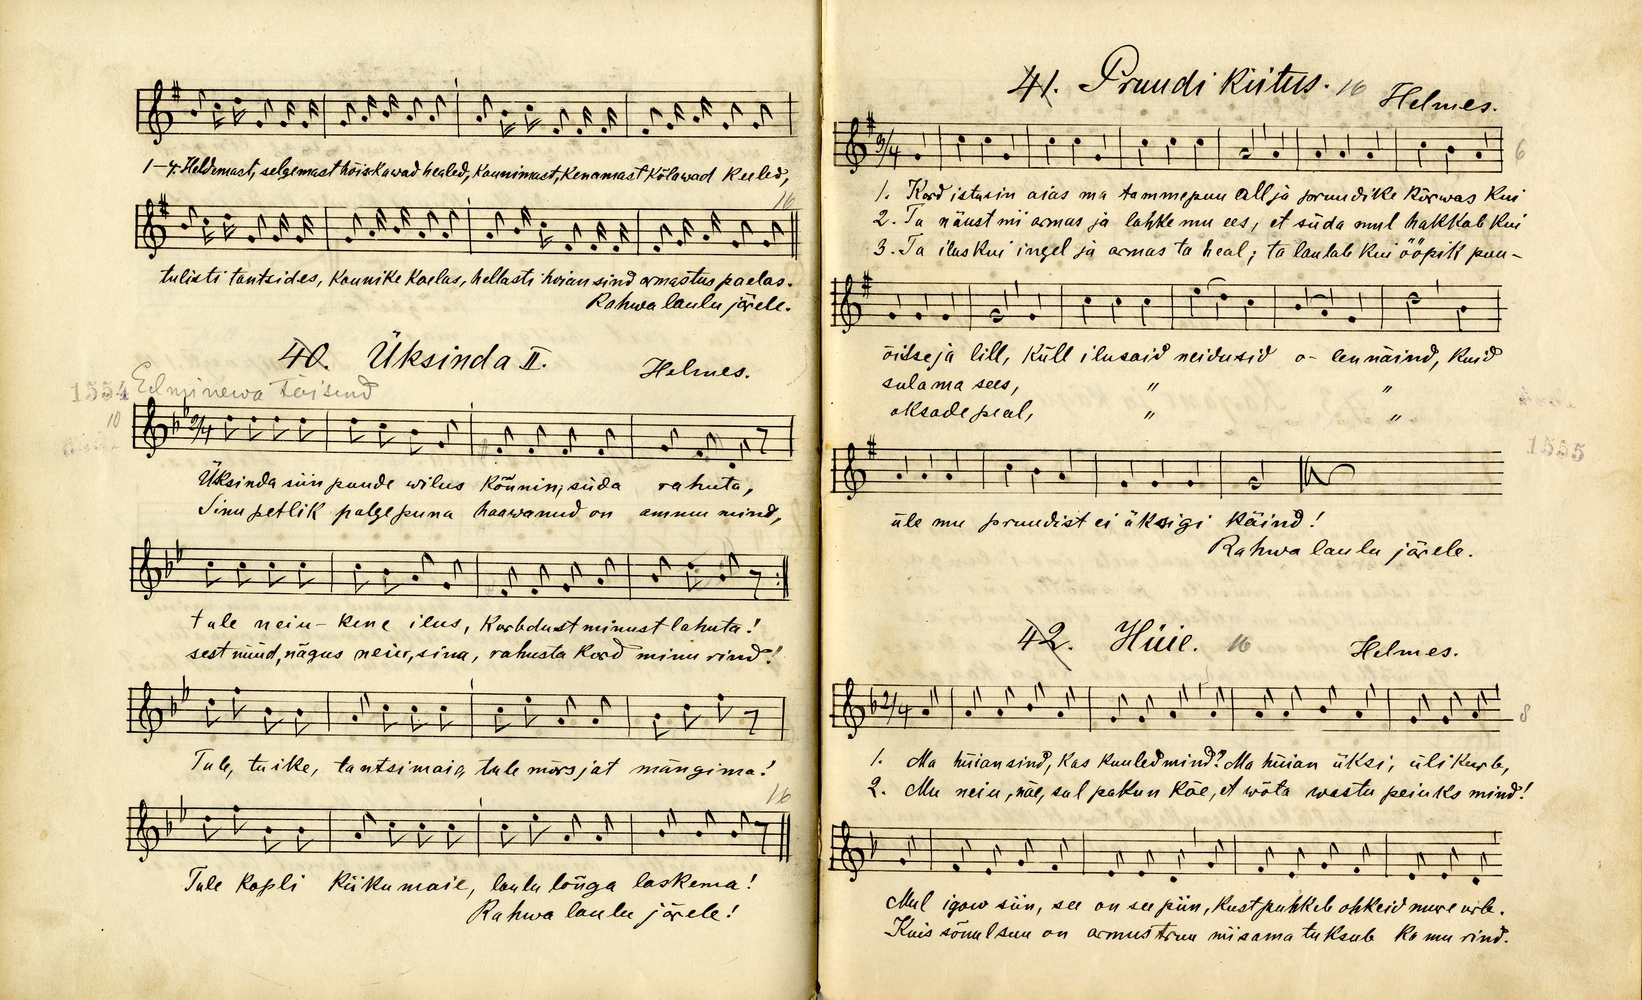 1–4. Heldemast, selgemast hõiskawad healed, kaunimast, kenamast kõlawad keeled,
16
tulisti tantsides, kaunike kaelas, hellasti hoian sind armastus paelas.
Rahwa laulu järele.
40. Üksinda II. Helmes.
1554 Eelmisewa teisend
10
Üksinda siin puude wilus kõnnin, süda rahuta,
Sinu petlik palge puna haawanud on ammu mind,
tule neiu-kene ilus, kurbdust minust lahuta!
sest nüüd, nägus neiu, sina, rahusta kord minu rind!
Tule, tuike, tantsimaie, tule mõrsjat mängima!
16
Tule kopli kiikumaie, laulu lõuga laskema!
Rahwa laulu järele!
41. Pruudi kiitus. 16 Helmes.
6
1. Kord istusin aias ma tammepuu all ja pruudike kõrwas kui
2. Ta näust mi armas ja lahke mu ees, et süda mul hakkab kui
3. Ta ilus kui ingel ja armas ta heal; ta laulab kui ööpik puu-
õitseja lill, Küll ilusaid neidusid o- len näind, kuid
sulama sees, " "
oksade peal, " "
1555
üle mu pruudist ei üksigi käind!
Rahwa laulu järele.
42. Hüie. 16 Helmes.
8
1. Ma hüian sind, kas kuuled mind? Ma hüian üksi, üli kurb,
2. Mu neiu, näe, sul pakun käe, et wõta wastu peiuks mind!
Mul igaw siin, see on see piin, kust puhkeb ohkeid mure urb.
Kuis sõnul suu on armus truu niisama tuksub ka mu rind.